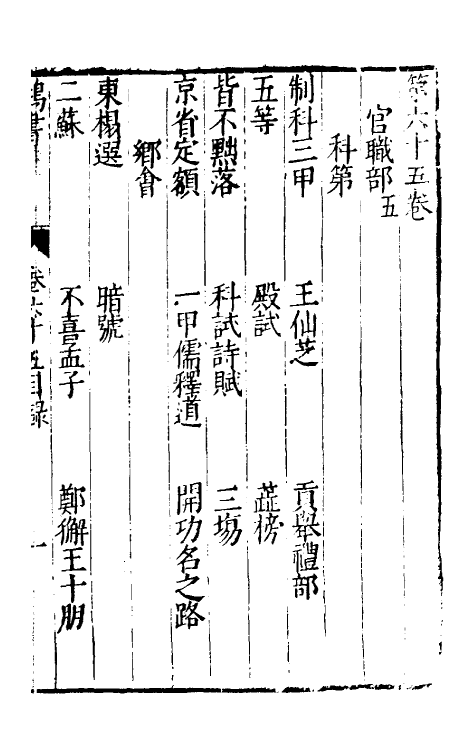 第六十五卷
官職部五
科第
制科三甲　王仙芝　貢舉禮部
五等　殿試　蕋榜
皆不黜落　科試詩賦　三塲
京省定額　一甲儒釋道　開功名之路
鄉會
東榻選　暗號
二蘇　不喜孟子　鄭獬王十朋
鴻書　卷六十五目錄　一